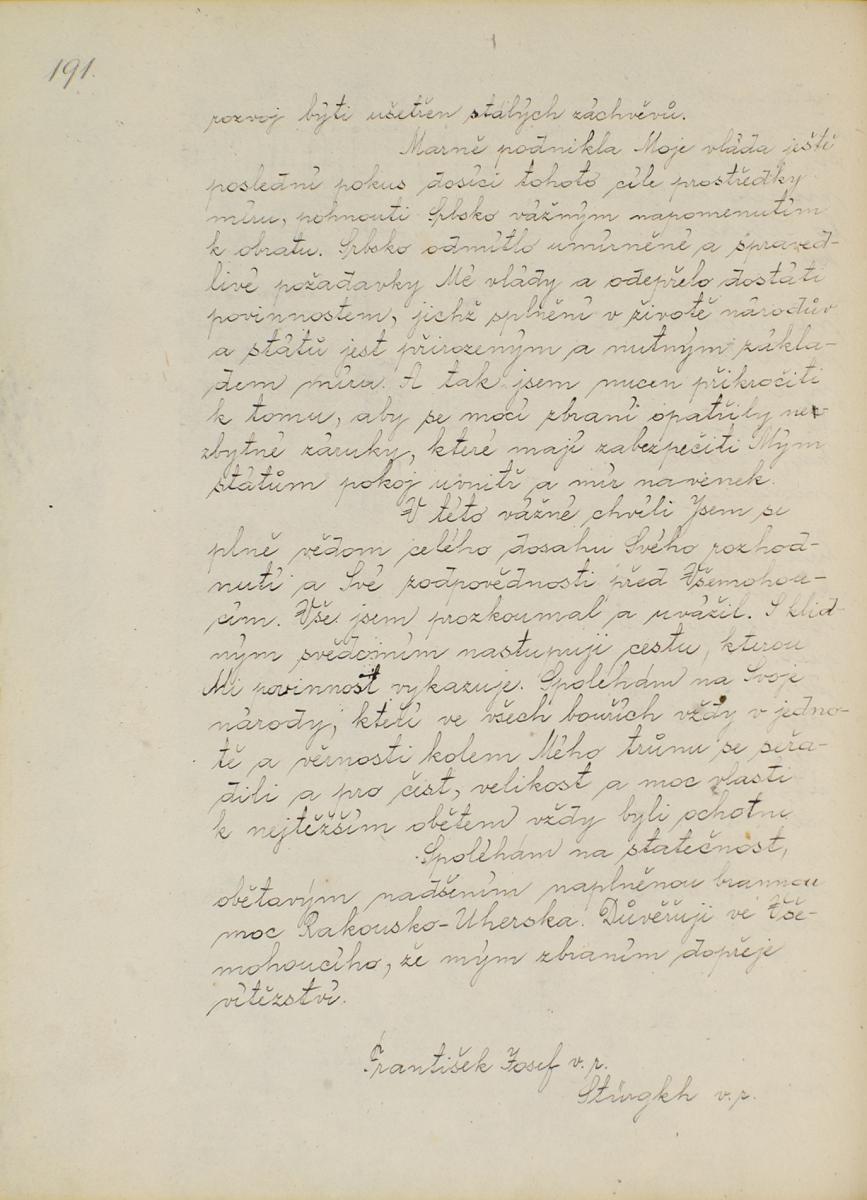 191.
rozvoj býti ušetřen stálých záchvěvů.
Marně podnikla Moje vláda ještě
poslední pokus dosíci tohoto cíle prostředky
míru, pohnouti Srbsko vážným napomenutím
k obratu. Srbsko odmítlo umírněné a spraved-
livé požadavky Mé vlády a odepřelo dostáti
povinnostem, jichž splnění v životě národův
a států jest přirozeným a nutným zákla-
dem míru. A tak jsem nucen přikročiti
k tomu, aby se mocí zbraní opatřily ne-
zbytné záruky, které mají zabezpečiti Mým
státům pokoj uvnitř a mír navenek.
V této vážné chvíli Jsem se
plně vědom celého dosahu Svého rozhod-
nutí a Své zodpovědnosti před Všemohou-
cím. Vše jsem prozkoumal a uvážil. S klid-
ným svědomím nastupuji cestu, kterou
Mi povinnost vykazuje. Spoléhám na Svoje
národy, kteří ve všech bouřích vždy v jedno-
tě a věrnosti kolem Mého trůnu se seřa-
dili a pro čest, velikost a moc vlasti
k nejtěžším obětem vždy byli ochotni
Spoléhám na statečnost,
obětavým nadšením naplněnou brannou
moc Rakousko-Uherska. Důvěřuji ve Vše-
mohoucího, že mým zbraním dopřeje
vítězství.
František Josef v. r.
Stürgkh v. r.